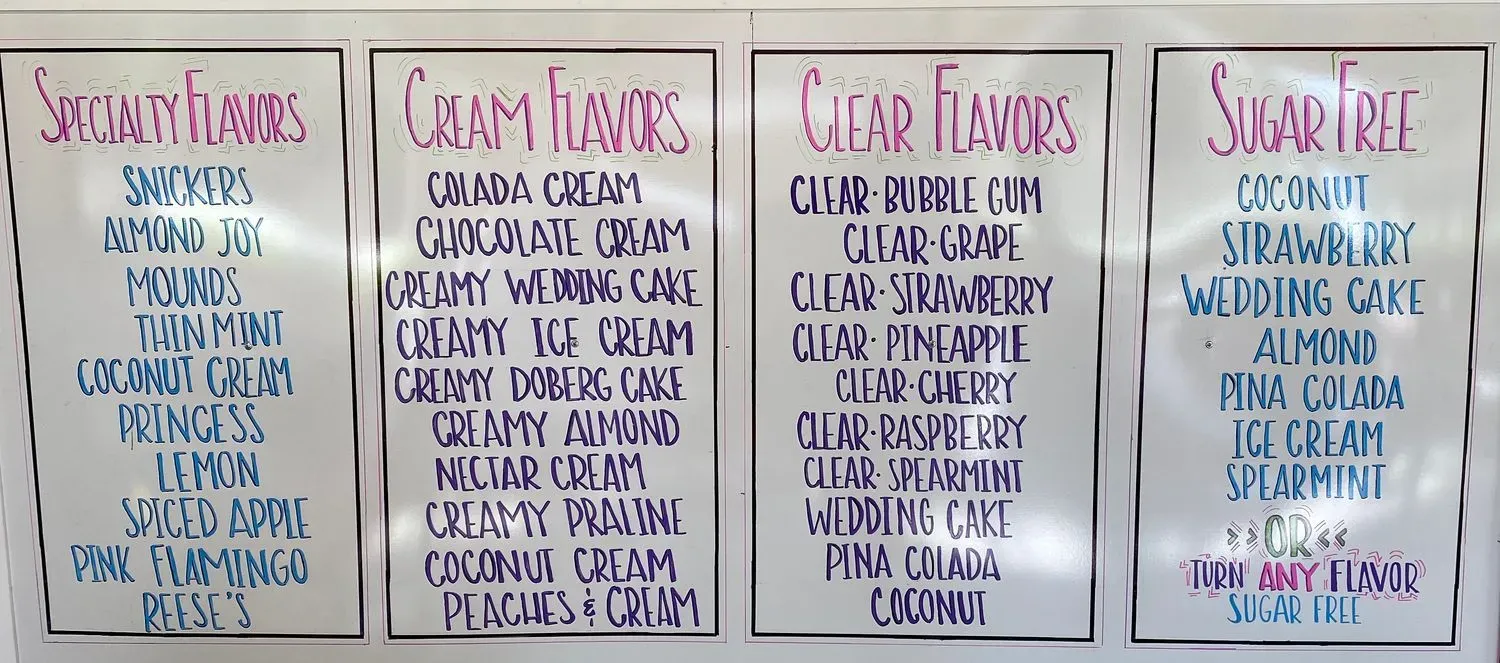 SPECIALTY FLAVORS
SNICKERS
ALMOND JOY
MOUNDS
THIN MINT
COCONUT CREAM
PRINCESS
LEMON
SPICED APPLE
PINK FLAMINGO
REESE'S
CREAM FLAVORS
COLADA CREAM
CHOCOLATE CREAM
CREAMY WEDDING CAKE
CREAMY ICE CREAM
CREAMY DOBERG CAKE
CREAMY ALMOND
NECTAR CREAM
CREAMY PRALINE
COCONUT CREAM
PEACHES & CREAM
CLEAR FLAVORS
CLEAR·BUBBLE GUM
CLEAR·GRAPE
CLEAR·STRAWBERRY
CLEAR·PINEAPPLE
CLEAR·CHERRY
CLEAR·RASPBERRY
CLEAR·SPEARMINT
WEDDING CAKE
PINA COLADA
COCONUT
SUGAR FREE
COCONUT
STRAWBERRY
WEDDING CAKE
ALMOND
PINA COLADA
ICE CREAM
SPEARMINT
OR
TURN ANY FLAVOR
SUGAR FREE